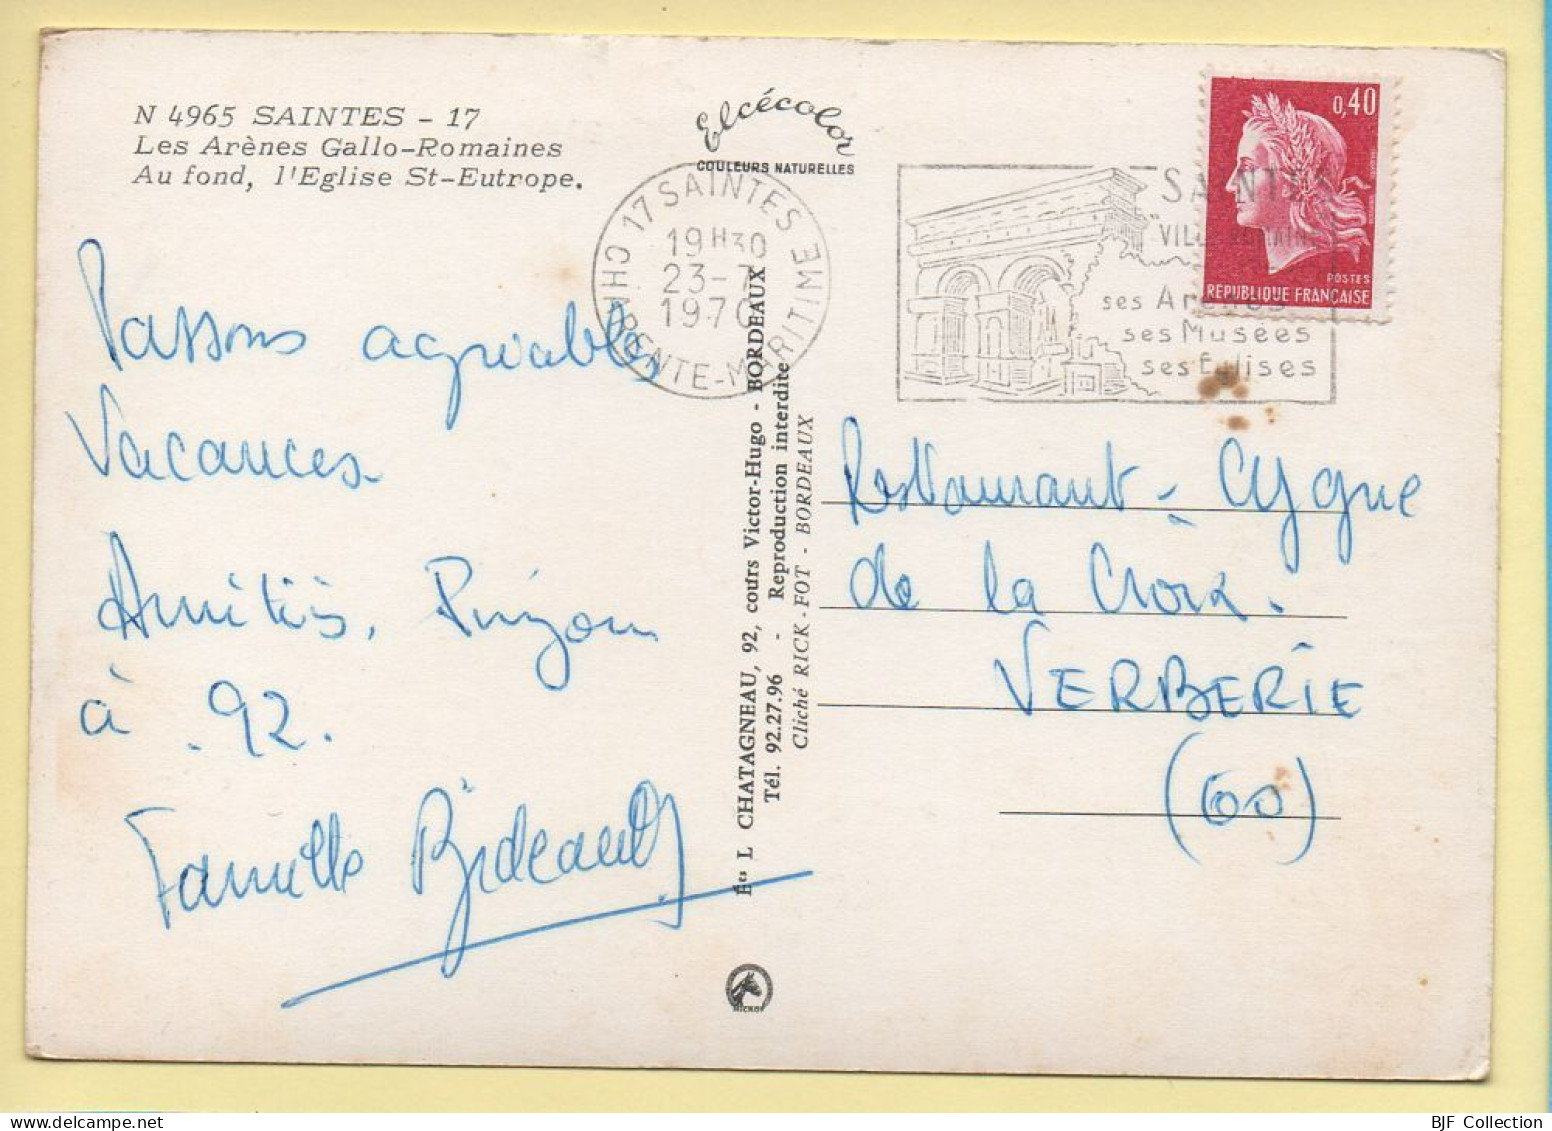 N 4965 SAINTES - 17
Les Arènes Gallo-Romaines
Au fond, l'Eglise St-Eutrope.
Elcécolor
COULEURS NATURELLES
17 SAINTES
19H30
23-7
1970
CHARENTE-MARITIME
SAINTES
"VILLE ROMAINE
ses Arènes
ses Musées
ses Eglises
0,40
POSTES
REPUBLIQUE FRANÇAISE
Passons agréables
Vacances
Amitiés,
à 92.
Famille
Ets L CHATAGNEAU, 92, cours Victor-Hugo - BORDEAUX
Tél. 92.27.96 - Reproduction interdite
Cliché RICK-FOT - BORDEAUX
Restaurant - Cygne
de la Croix.
VERBERIE
(60)
BJF Collection